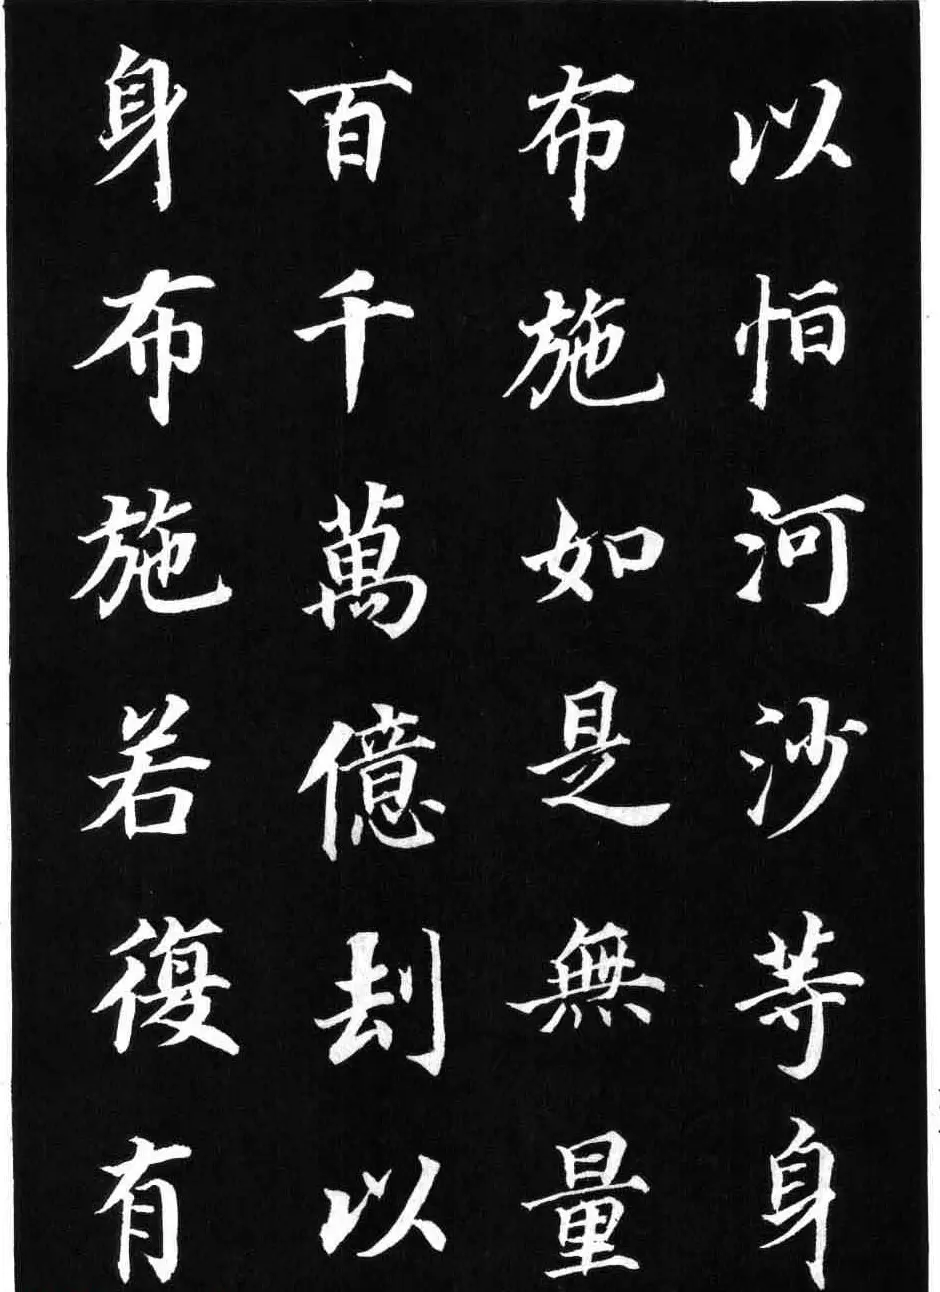 以恒河沙等身
布施如是無量
百千萬億刦以
身布施若復有